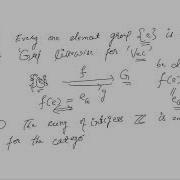 Every one element group {e} is
Grp likewise for 'Vec'
be d
{e} f G
f(e) = e_G
f(e)
The ring of integers ℤ is
for the catego